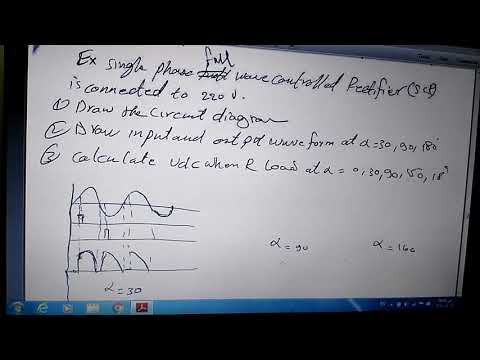 Ex single phase full wave controlled Rectifier (SCR)
is connected to 220 v.
① Draw the circuit diagram
② Draw input and out pot wave form at α=30, 90, 180°
③ Calculate Vdc when R Load at α = 0, 30, 90, 150, 180°
α = 90
α = 160
α = 30